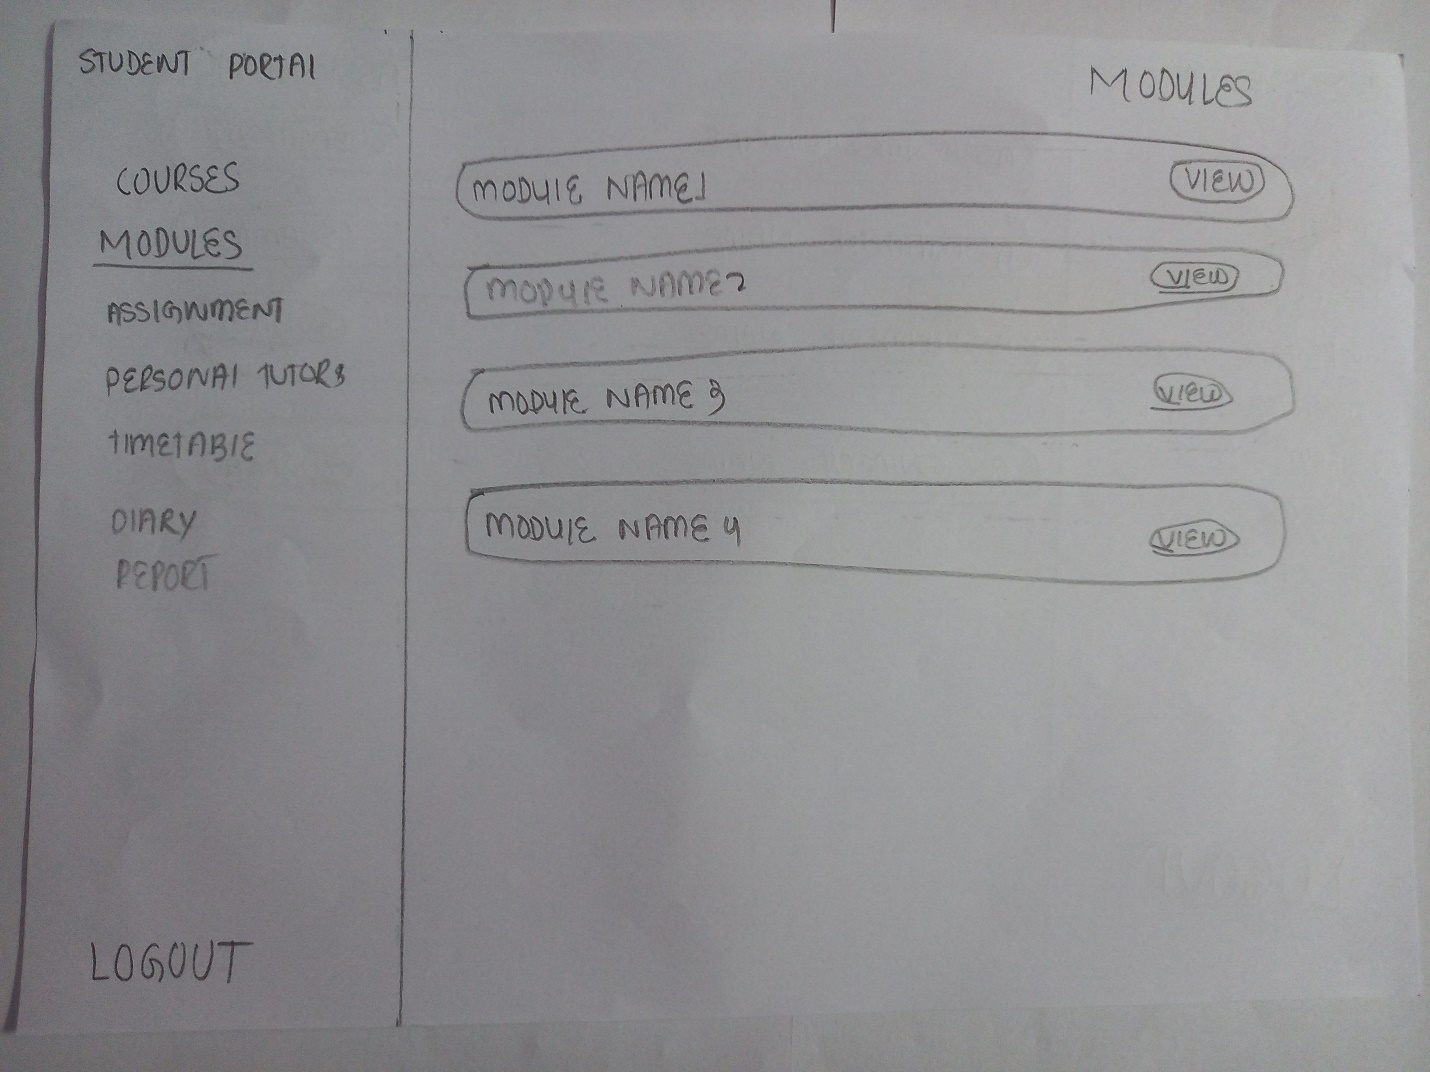 STUDENT PORTAL
COURSES
MODULES
ASSIGNMENT
PERSONAL TUTORS
TIMETABLE
DIARY
REPORT
LOGOUT
MODULES
MODULE NAME1 VIEW
MODULE NAME2 VIEW
MODULE NAME 3 VIEW
MODULE NAME 4 VIEW